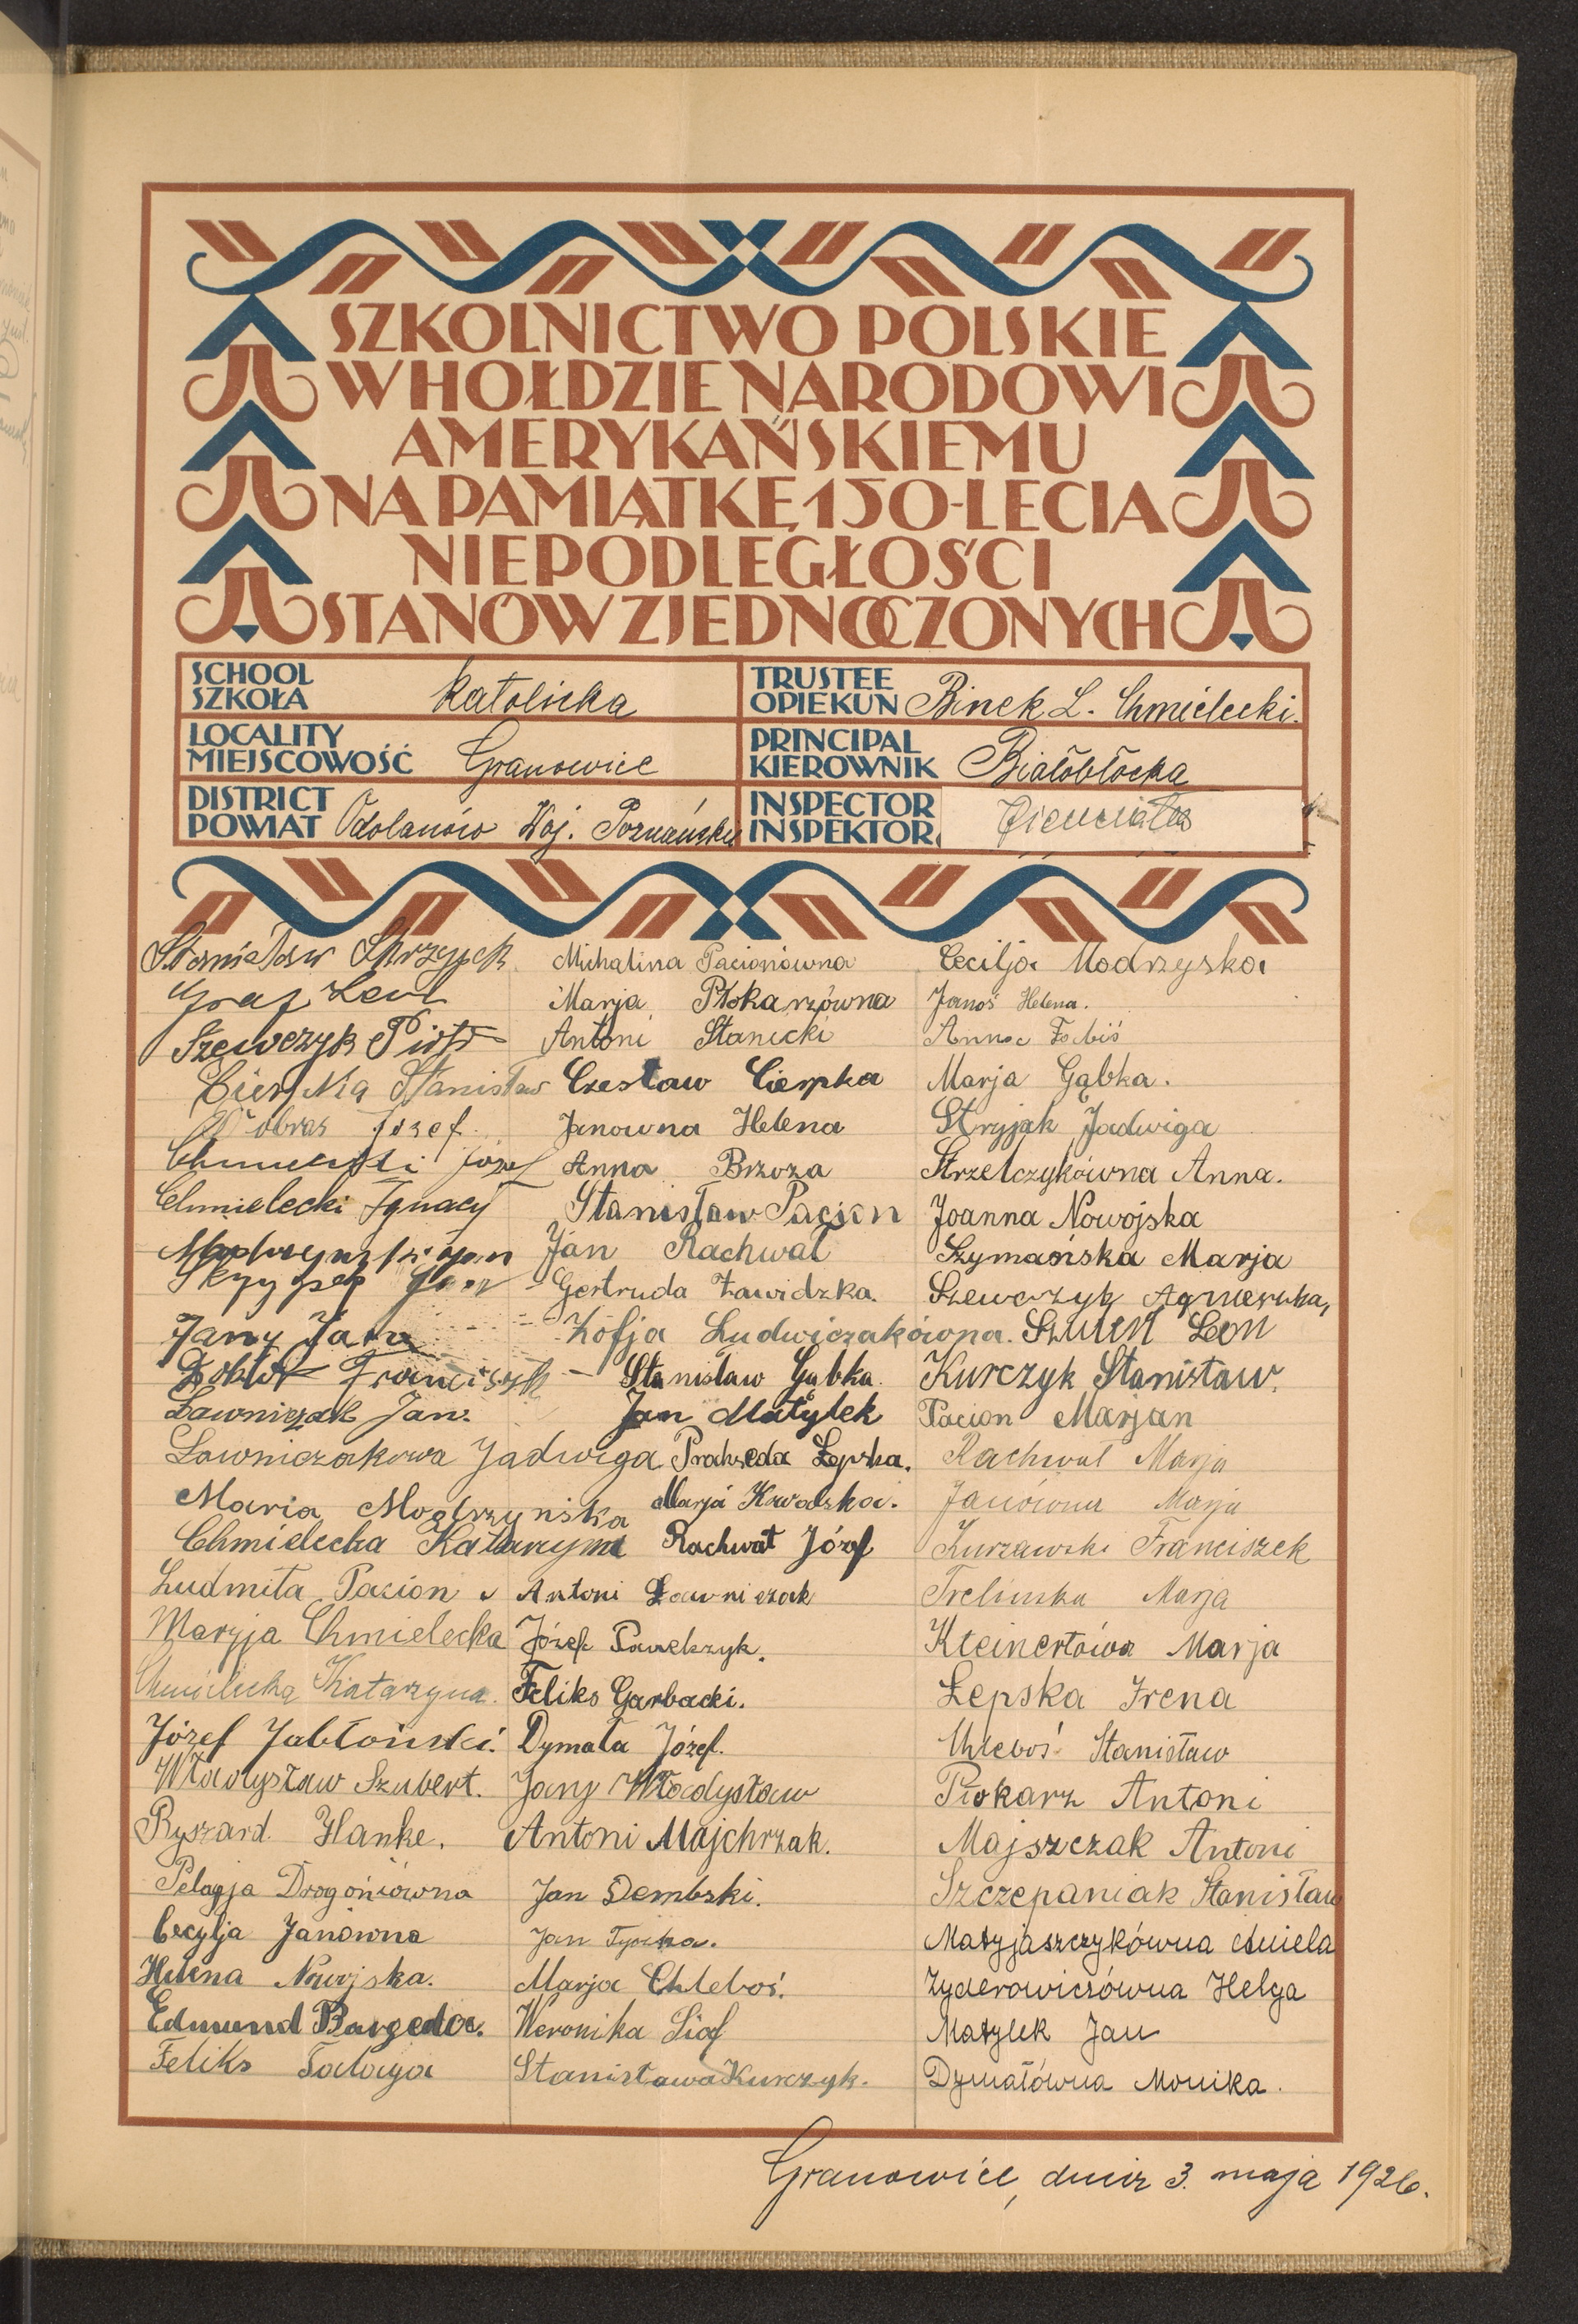 SZKOLNICTWO POLSKIE
W HOŁDZIE NARODOWI
AMERYKAŃSKIEMU
NA PAMIĄTKĘ 150-LECIA
NIEPODLEGŁOŚCI
STANÓW ZJEDNOCZONYCH
SCHOOL
SZKOŁA
Katolicka
TRUSTEE
OPIEKUN
Binek L. Chmielecki.
LOCALITY
MIEJSCOWOŚĆ
Granowiec
PRINCIPAL
KIEROWNIK
Białobłocka
DISTRICT
POWIAT
Odolanów Woj. Poznańskie
INSPECTOR
INSPEKTOR
Stanisław Skrzypek
Graf Leon
Szewczyk Piotr
Cierpka Stanisław
Józef
Józef
Chmielecki Ignacy
Jan
Skrzypek Jan
Jany Jan
Doktór Franciszek
Ławniczak Jan.
Ławniczakowa Jadwiga
Maria Modrzyńska
Chmielecka Katarzyna
Ludmiła Pacion
Maryja Chmielecka
Chmielecka Katarzyna.
Józef Jabłoński.
Władysław Szubert.
Ryszard Hanke.
Pelagja Drogoniówna
Cecylja Janówna
Helena Nowojska.
Edmund Bargeda.
Feliks Talaga
Michalina Pacionówna
Marja Piekarzówna
Antoni Stanicki
Czesław Cierpka
Janowna Helena
Anna Brzoza
Stanisław Pacion
Jan Rachwał
Gertruda Zawidzka.
Zofja Ludwiczakówna.
Stanisław Gąbka.
Jan Matylek
Prakseda Łepska.
Marja
Rachwał Józef
Antoni Ławniczak
Józef Pawelczyk.
Feliks Garbacki.
Dymała Józef.
Jany Władysław
Antoni Majchrzak.
Jan Dembski.
Jan
Marja Chleboś.
Weronika
Stanisława Kurczyk.
Cecilja Modrzyska
Janoś Helena.
Anna
Marja Gąbka.
Stryjak Jadwiga
Strzelczykówna Anna.
Joanna Nowojska
Szymańska Marja
Szewczyk Agnieszka,
Szulek Leon
Kurczyk Stanisław.
Pacion Marjan
Rachwał Marja
Janówna Marja
Kurzawski Franciszek
Trelińska Marja
Kleinertówa Marja
Łepska Irena
Chleboś Stanisław
Piekarz Antoni
Majszczak Antoni
Szczepaniak Stanisław
Matyjaszczykówna Aniela
Zyderowiczówna Helga
Matylek Jan
Dymałówna Monika.
Granowiec, dnia 3. maja 1926.